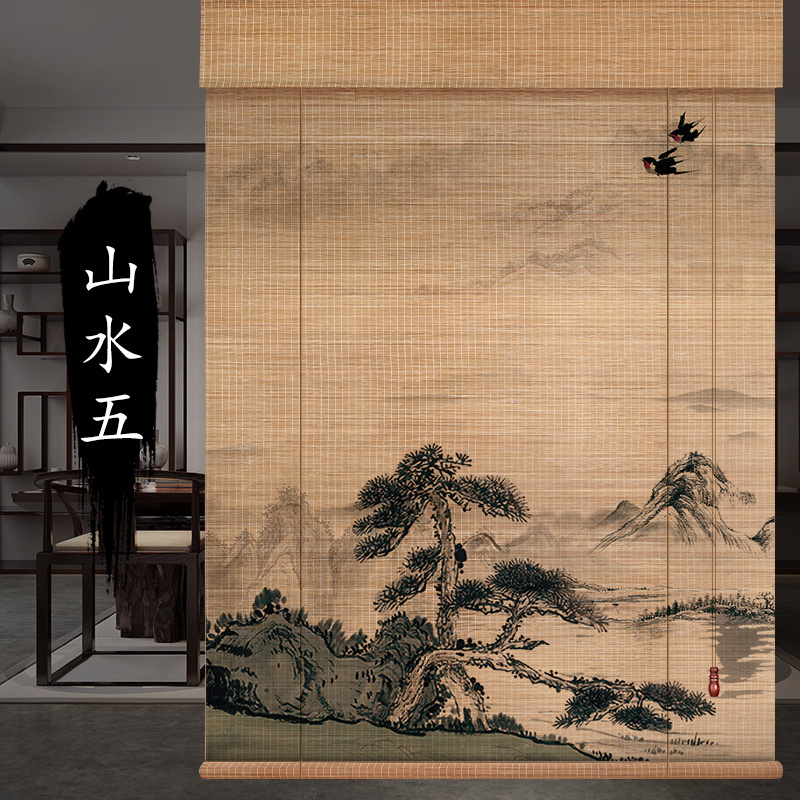 山水五